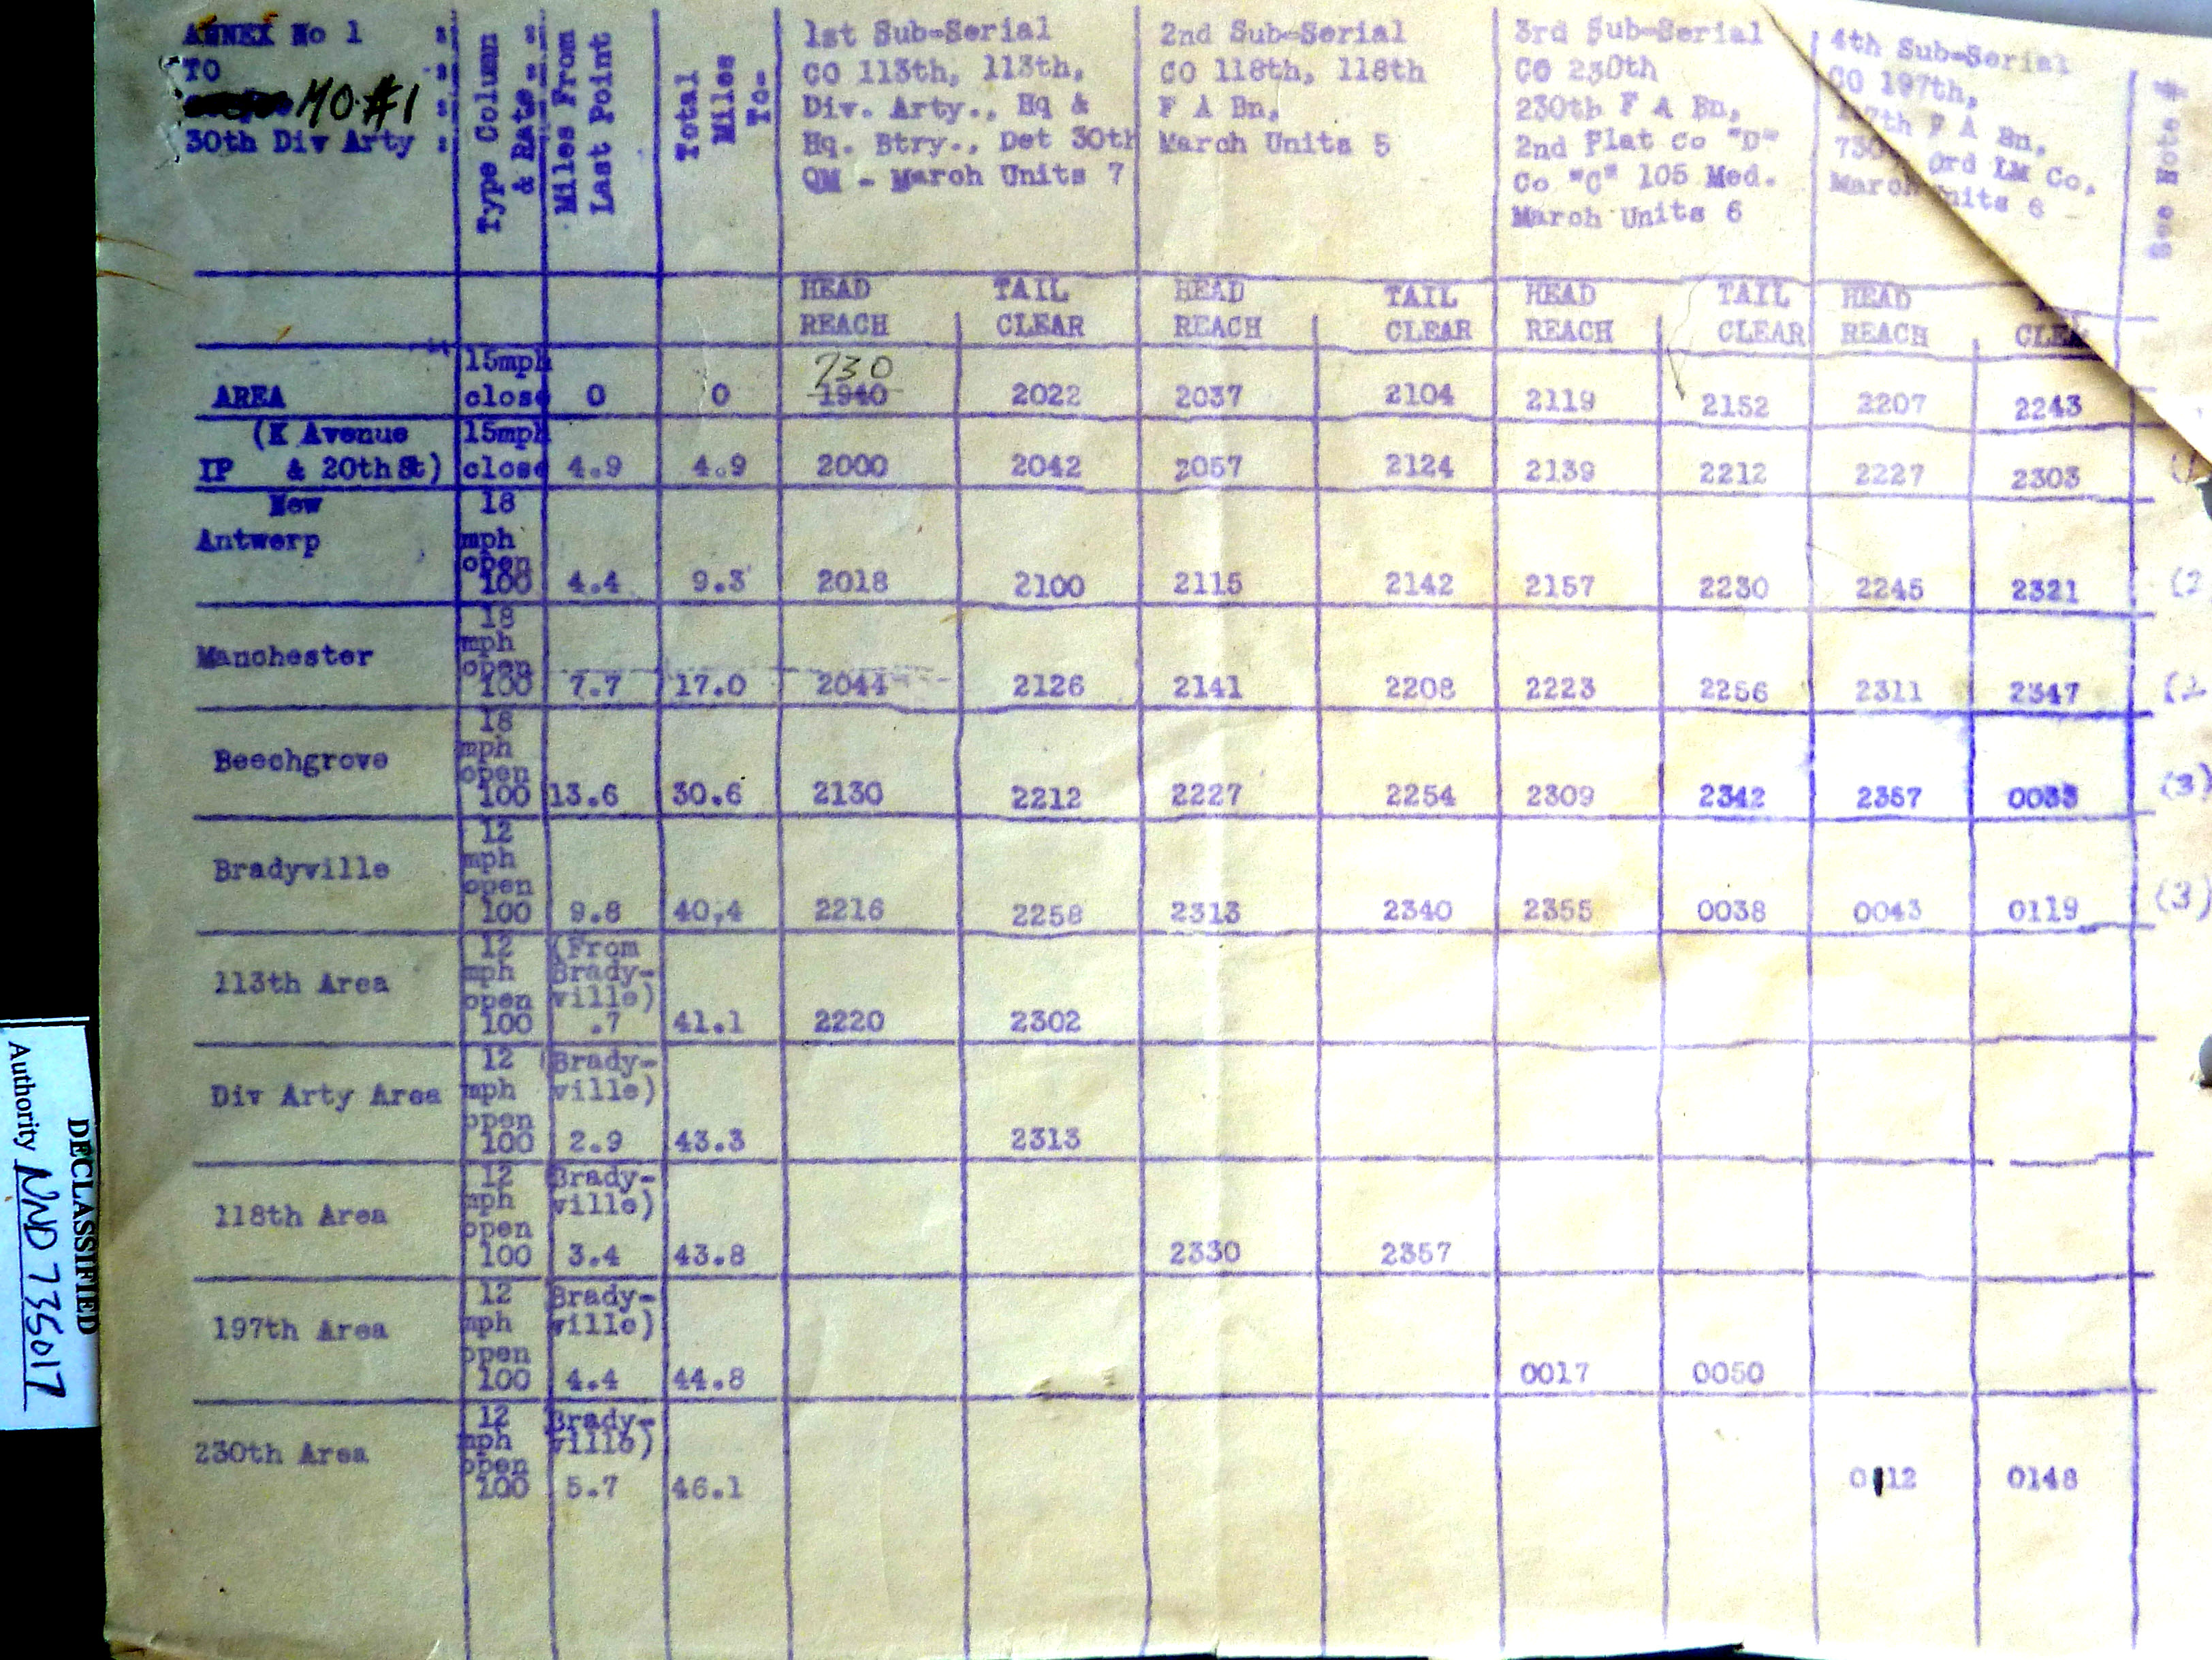 ANNEX No 1 :
TO :
MO #1 :
30th Div Arty :
Type Column & Rate - -
Miles From Last Point
Total Miles To-
1st Sub-Serial
CO 113th, 113th,
Div. Arty., Hq &
Hq. Btry., Det 30th
QM - March Units 7
2nd Sub-Serial
CO 118th, 118th
F A Bn,
March Units 5
3rd Sub-Serial
CO 230th
230th F A Bn,
2nd Plat Co "D"
Co "C" 105 Med.
March Units 6
4th Sub-Serial
CO 197th,
7th F A Bn,
730 Ord LM Co,
March nits 6
See Note #
HEAD TAIL HEAD TAIL HEAD TAIL HEAD
REACH CLEAR REACH CLEAR REACH CLEAR REACH CLEA
15mph 730
AREA close 0 0 1940 2022 2037 2104 2119 2152 2207 2243
(K Avenue 15mph
IP & 20th St) close 4.9 4.9 2000 2042 2057 2124 2139 2212 2227 2303
New 18
Antwerp mph
open
100 4.4 9.3 2018 2100 2115 2142 2157 2230 2245 2321 (2
18
Manchester mph
open
100 7.7 17.0 2044 2126 2141 2208 2223 2256 2311 2347
18
Beechgrove mph
open
100 13.6 30.6 2130 2212 2227 2254 2309 2342 2357 0033 (3)
12
Bradyville mph
open
100 9.8 40,4 2216 2258 2313 2340 2355 0038 0043 0119 (3)
12 (From
113th Area mph Brady-
open ville)
100 .7 41.1 2220 2302
12 (Brady-
Div Arty Area mph ville)
open
100 2.9 43.3 2313
12 Brady-
118th Area mph ville)
open
100 3.4 43.8 2330 2357
12 Brady-
197th Area mph ville)
open
100 4.4 44.8 0017 0050
12 Brady-
230th Area mph ville)
open
100 5.7 46.1 0112 0148
DECLASSIFIED
Authority NND 735017